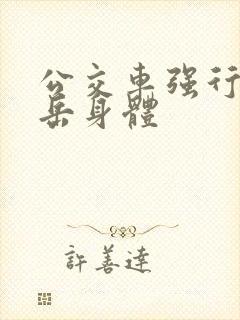 公交車强行
岳身體
許善達